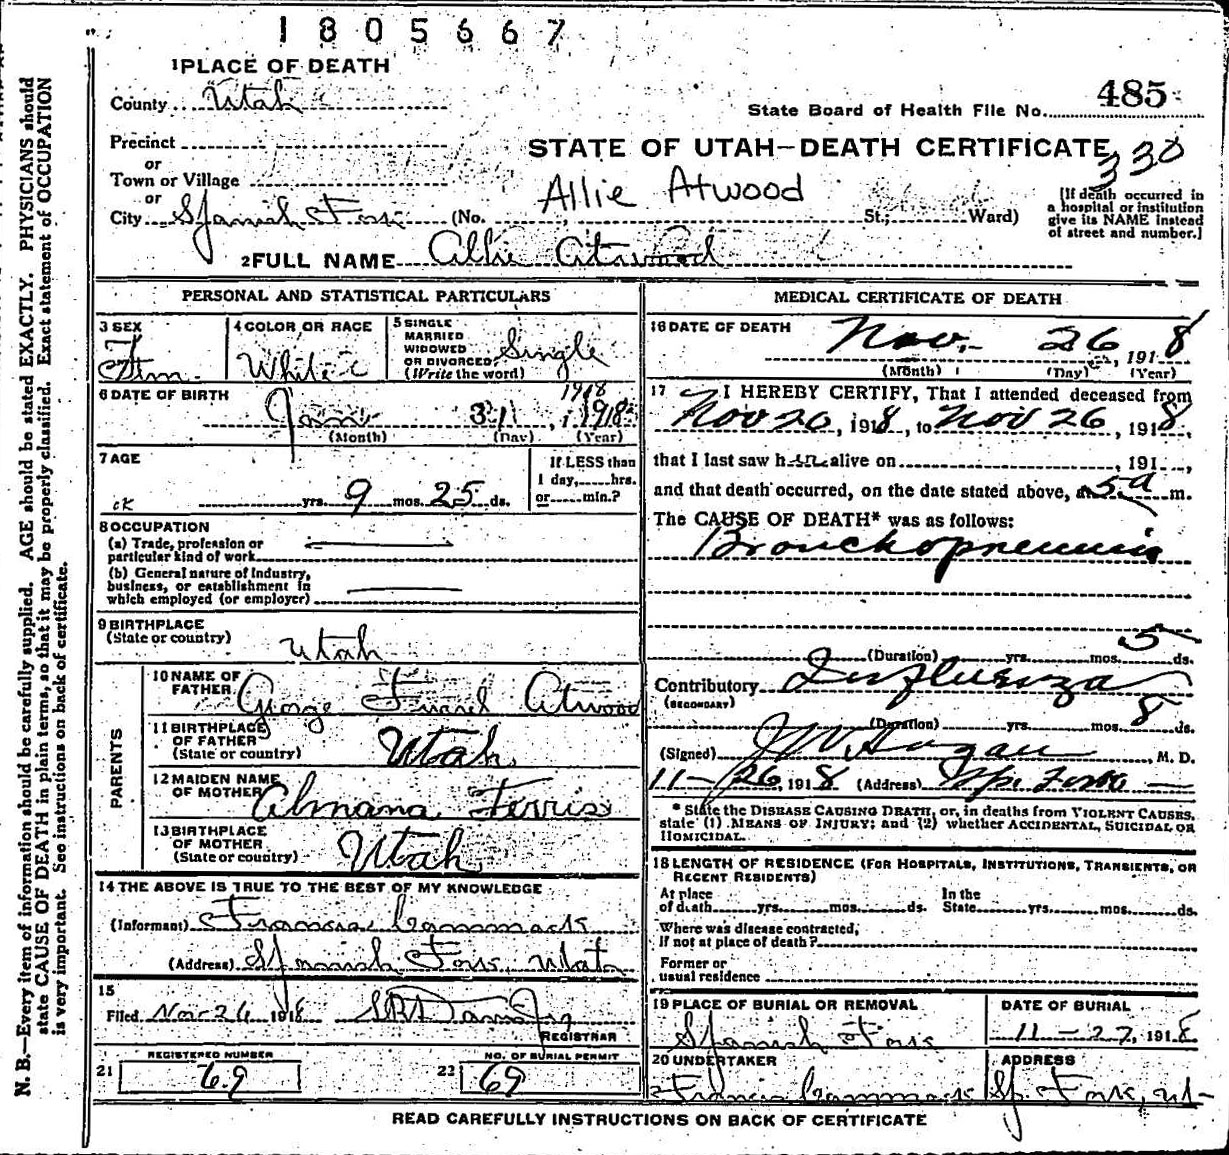 1805667
1 PLACE OF DEATH
County Utah
State Board of Health File No. 485
Precinct
or
Town or Village
or
City Spanish Fork (No. St; Ward)
STATE OF UTAH—DEATH CERTIFICATE
330
Allie Atwood
[If death occurred in
a hospital or institution
give its NAME instead
of street and number.]
2 FULL NAME Allie Atwood
PERSONAL AND STATISTICAL PARTICULARS
3 SEX
Fem.
4 COLOR OR RACE
White
5 SINGLE
MARRIED
WIDOWED
OR DIVORCED
(Write the word)
Single
6 DATE OF BIRTH
1918
Jan 31, 1918
(Month) (Day) (Year)
7 AGE
ck yrs. 9 mos. 25 ds.
If LESS than
1 day, hrs.
or min.?
8 OCCUPATION
(a) Trade, profession or
particular kind of work
(b) General nature of Industry,
business, or establishment in
which employed (or employer)
9 BIRTHPLACE
(State or country)
Utah
PARENTS
10 NAME OF
FATHER
George Atwood
11 BIRTHPLACE
OF FATHER
(State or country)
Utah
12 MAIDEN NAME
OF MOTHER
Almana Ferris
13 BIRTHPLACE
OF MOTHER
(State or country)
Utah
14 THE ABOVE IS TRUE TO THE BEST OF MY KNOWLEDGE
(Informant) Francis Cammack
(Address) Spanish Fork, Utah
15
Filed Nov 26 1918
REGISTRAR
REGISTERED NUMBER
21 69
NO. OF BURIAL PERMIT
22 69
MEDICAL CERTIFICATE OF DEATH
16 DATE OF DEATH
Nov. 26, 1918
(Month) (Day) (Year)
17 I HEREBY CERTIFY, That I attended deceased from
Nov 26, 1918, to Nov 26, 1918,
that I last saw her alive on , 191 ,
and that death occurred, on the date stated above, at 5 a m.
The CAUSE OF DEATH* was as follows:
Bronchopneumia
5
(Duration) yrs. mos. ds.
Contributory Influenza
(SECONDARY)
(Duration) yrs. mos. 8 ds.
(Signed) J W Hagan, M. D.
11—26, 1918 (Address) Sp. Fork
* State the DISEASE CAUSING DEATH, or, in deaths from VIOLENT CAUSES,
state (1) MEANS OF INJURY; and (2) whether ACCIDENTAL, SUICIDAL OR
HOMICIDAL.
18 LENGTH OF RESIDENCE (FOR HOSPITALS, INSTITUTIONS, TRANSIENTS, OR
RECENT RESIDENTS)
At place In the
of death yrs. mos. ds. State yrs. mos. ds.
Where was disease contracted,
If not at place of death?
Former or
usual residence
19 PLACE OF BURIAL OR REMOVAL
Spanish Fork
DATE OF BURIAL
11—27, 1918
20 UNDERTAKER
Francis Cammack
ADDRESS
Sp. Fork, Ut
READ CAREFULLY INSTRUCTIONS ON BACK OF CERTIFICATE
N. B.—Every item of information should be carefully supplied. AGE should be stated EXACTLY. PHYSICIANS should
state CAUSE OF DEATH in plain terms, so that it may be properly classified. Exact statement of OCCUPATION
is very important. See instructions on back of certificate.